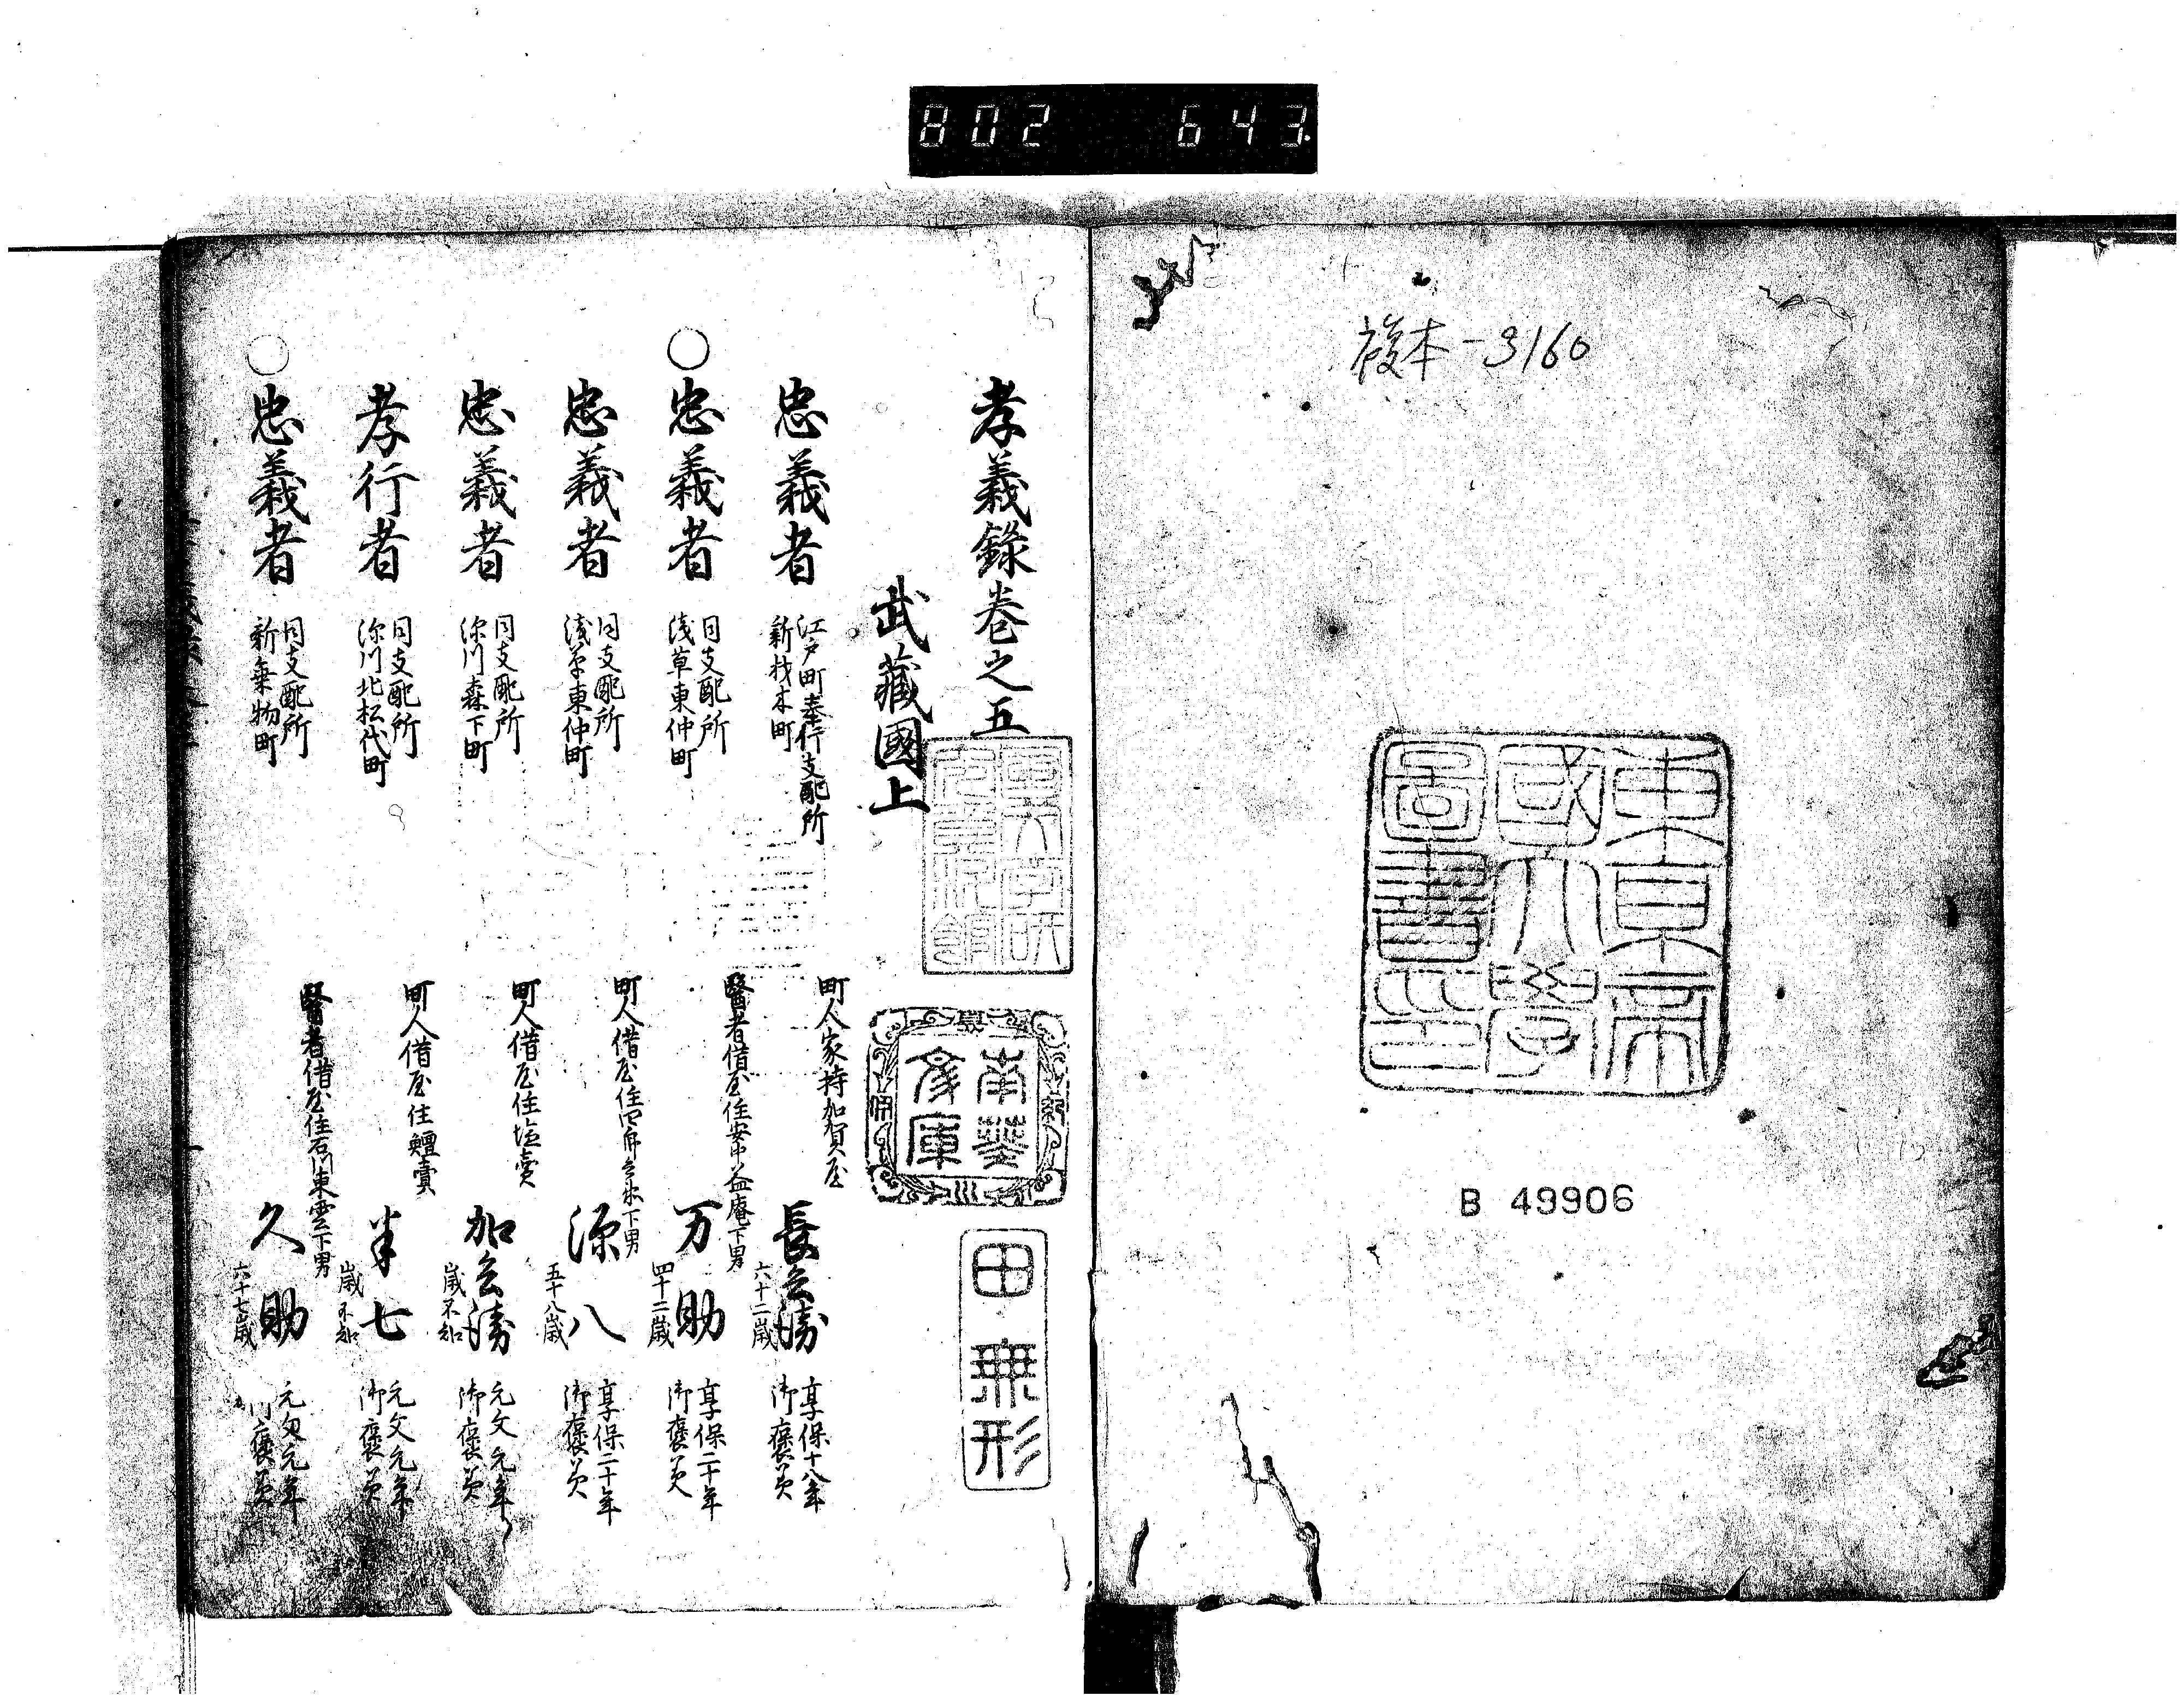 802 643
複本-3160
東京帝
國大學
圖書印
B 49906
孝義錄卷之五
武藏國上
忠義者
江戸町奉行支配所
新材木町
町人家持加賀屋
長兵衛
六十二歳
享保十八年
御褒美
○忠義者
同支配所
浅草東仲町
醫者借屋住安中益庵下男
万助
四十二歳
享保二十年
御褒美
忠義者
同支配所
淺草東仲町
源八
五十八歳
享保二十年
御褒美
忠義者
同支配所
深川森下町
町人借屋住塩賣
加兵衛
歳不知
元文元年
御褒美
孝行者
同支配所
深川北松代町
町人借屋住鱣賣
半七
歳不知
元文元年
御褒美
○忠義者
同支配所
新乗物町
醫者借屋住石川東雲下男
久助
六十七歳
元文元年
御褒美
南葵
文庫